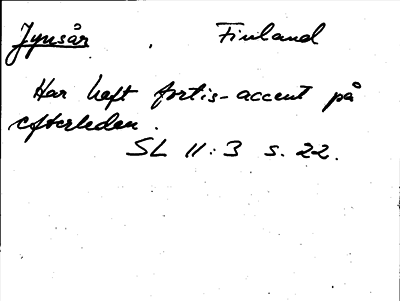 Jynsår Finland
Har haft fortis-accent på
efterleden.
SL 11:3 s. 22.